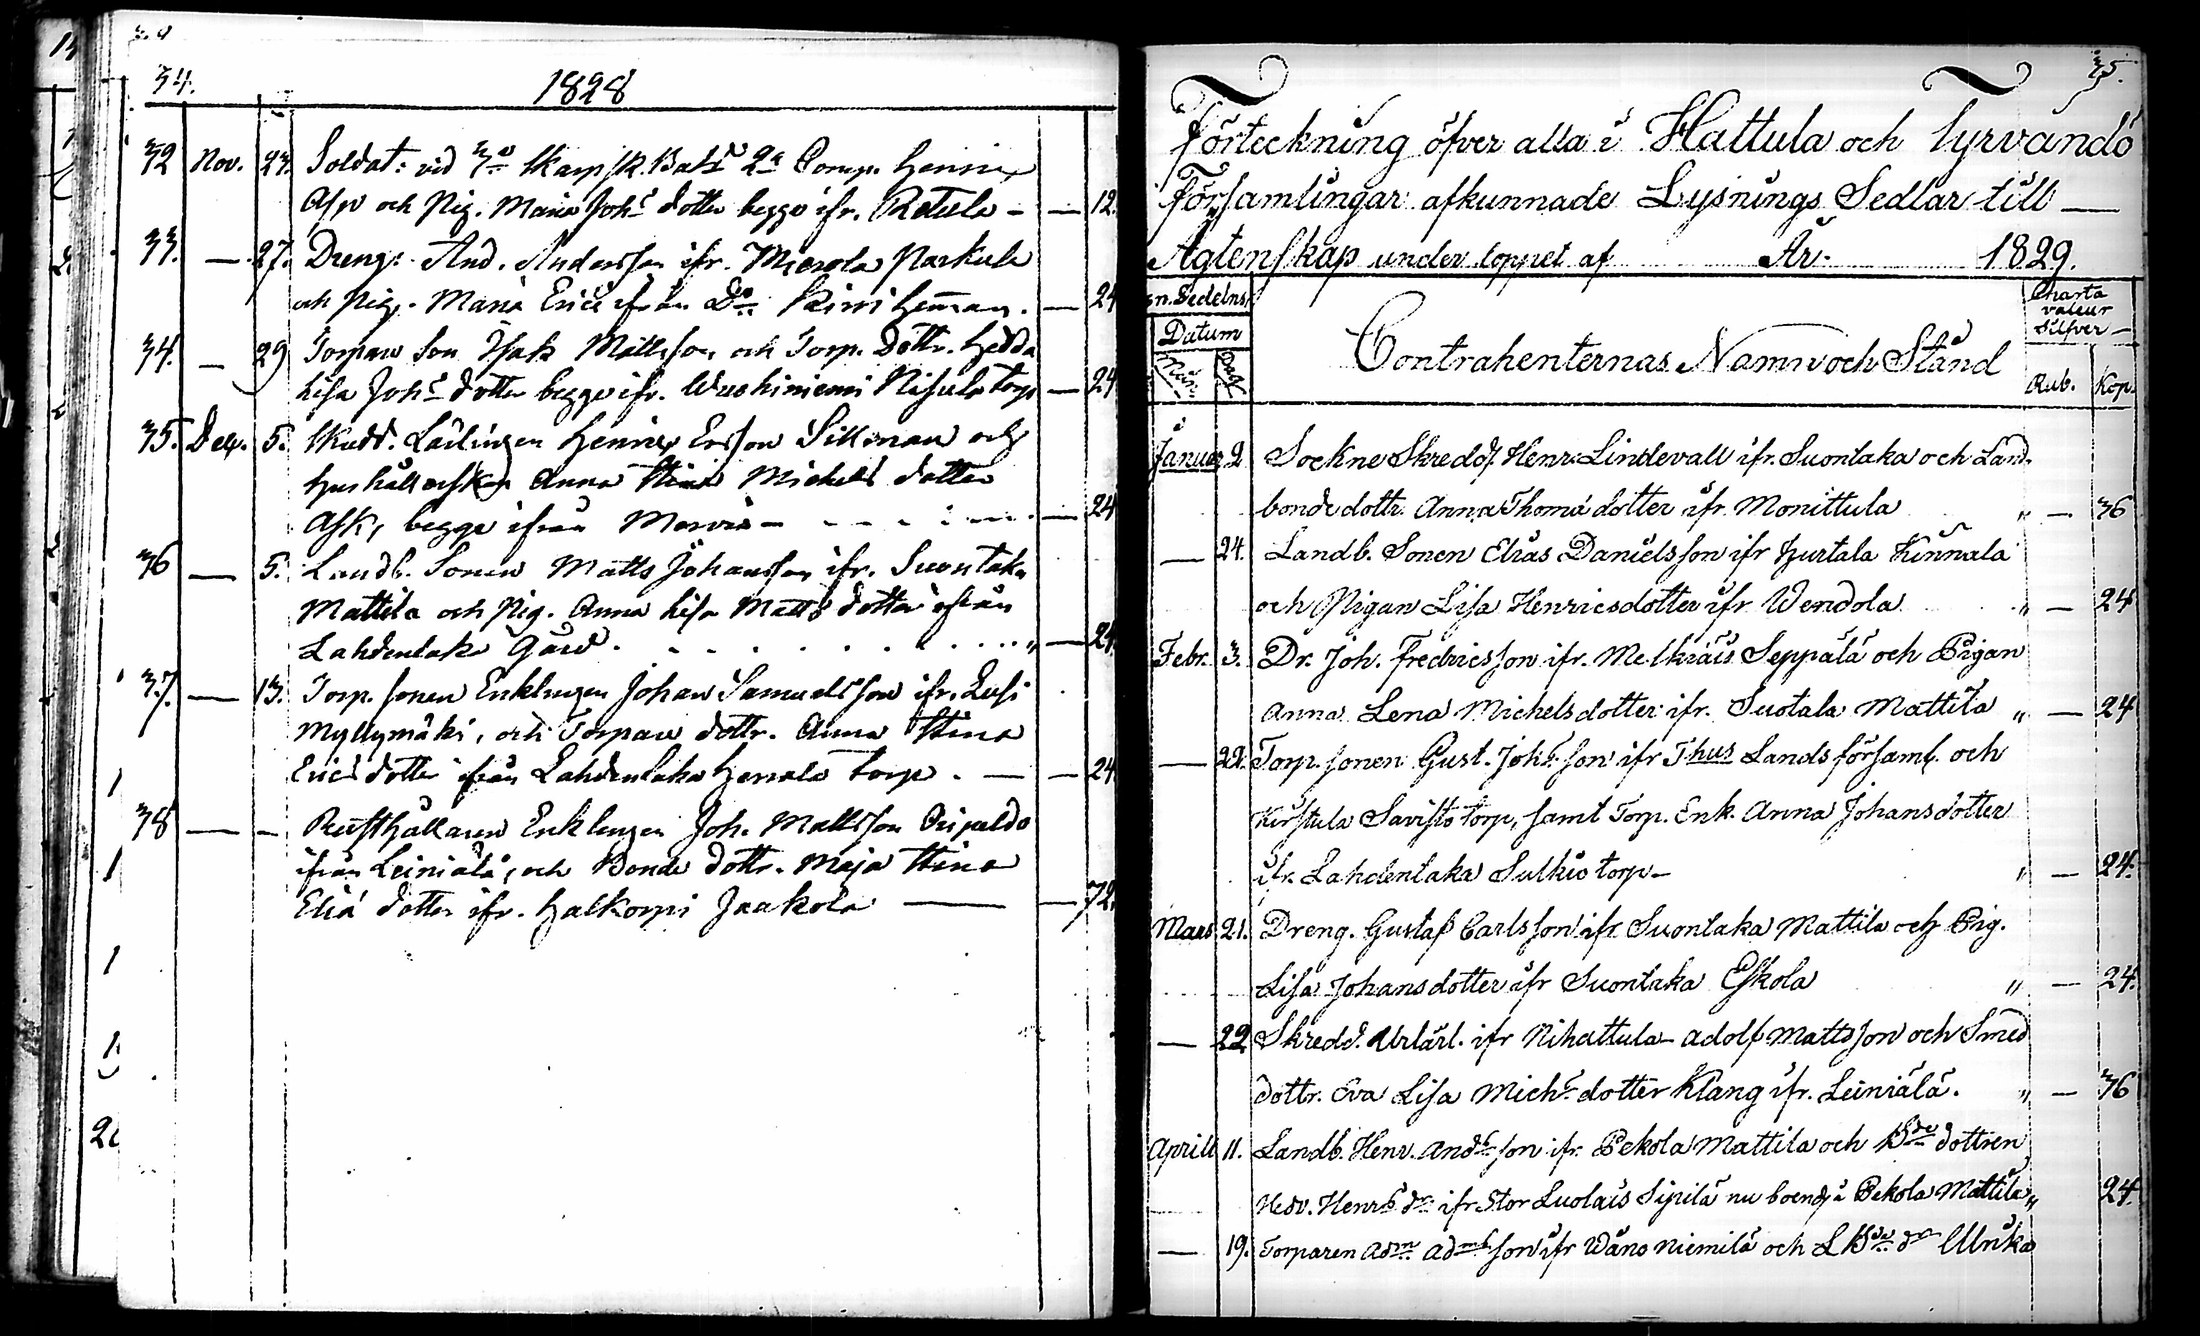 34.
1828
32 Nov. 23. Soldat: vid 3de Skarpsk. Bats 2a Comp. Henric
Asp och Pig. Maria Johs dotter begge ifr. Retula - — 12.
33. — 27. Dreng. And. Andersson ifr. Mierola Parkula
och Pig. Maria Erics ifrån Do Kiwi Heman. — 24
34. — 29 Torpare Son Isak Mattsson och Torp. Dottr. Hedda
Lisa Johs dotter begge ifr. Wuohiniemi Nisula torp — 24
35. Dec. 5. Skredd. Lärlingen Henric Ersson Sillman och
Hushållerskan Anna Stina Michels dotter
Ask, begge ifrån Mervis - — 24
36 — 5. Landb. Sonen Matts Johansson ifr. Suontaka
Mattila och Pig. Anna Lisa Matts dotter ifrån
Lahdentaka Gård. — 24
37. — 13. Torp. sonen Enklingen Johan Samuelsson ifr. Lusi
Myllymäki, och Torpare dottr. Anna Stina
Erics dotter ifrån Lahdentaka Heralo torp. — 24
38 — - Rusthållaren Enklingen Joh. Mattsson
ifrån Leiniälä, och Bonde dottr. Maja Stina
Eliæ dotter ifr. Halkorpi Jaakola — 72.
35.
Förteckning öfver alla i Hattula och Tyrvändö
Församlingar afkunnade Lysnings Sedlar till —
Ägtenskap under loppet af År. 1829.
Sedelns
Datum
Mån
Dag
Contrahenternas Namn och Stånd
Charta
valeur
Silfver
Rub. Kop.
Januar 2 Sockne Skredd. Henr. Lindevall ifr. Suontaka och Land-
bonde dottr. Anna Thomæ dotter ifr Monittula „ — 36
— 24. Landb. Sonen Elias Danielsson ifr Hurtala Kinnala
och Pigan Lisa Henricsdotter ifr Wendola „ — 24
Febr. 3. Dr. Joh. Fredricsson ifr. Melkiäis Seppälä och Pigan
Anna Lena Michelsdotter ifr. Suotala Mattila „ — 24
— 22. Torp. sonen Gust. Johs son ifr Thus Landsförsaml. och
Kirstula Savisto torp, samt Torp. Enk. Anna Johansdotter
ifr. Lahdentaka Sulkio torp - „ — 24.
Mars 21. Dreng. Gustaf Carlsson ifr Suontaka Mattila och Pig.
Lisa Johansdotter ifr Suontaka Eskola „ — 24.
— 22 Skredd. Utlärl. ifr Nihattula - Adolf Mattsson och Smed
dottr. Eva Lisa Michs dotter Klang ifr. Leiniälä. „ — 36
Aprill 11. Landb. Henr. Ands son ifr. Pekola Mattila och Bde dottren
Hedv. Henrs dr ifr Stor Luolais Sipilä nu boende i Pekola Mattila „ 24.
— 19. Torparen Adm Adms son ifr Wäno Niemilä och L Bde dr Ulrika